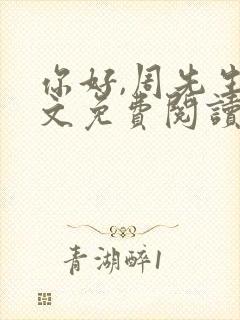 你好,周先生
文免费閱讀
青湖醉1